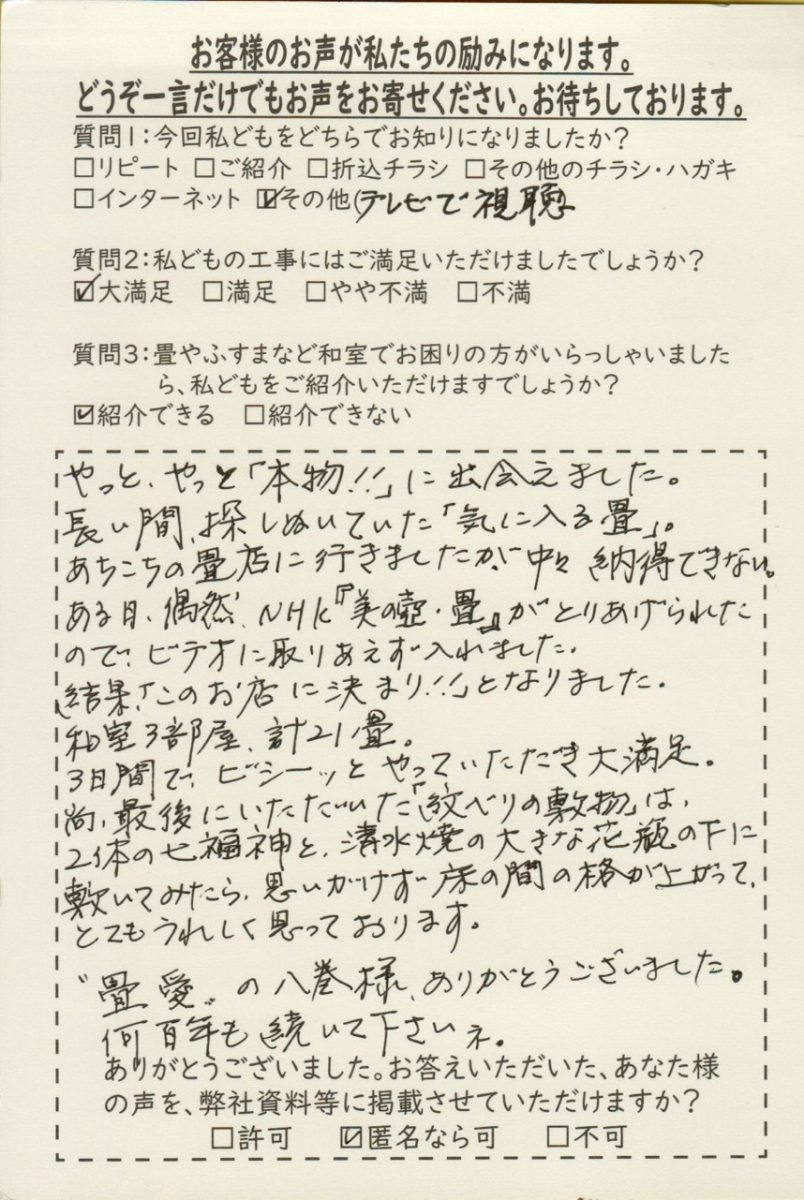 お客様のお声が私たちの励みになります。
どうぞ一言だけでもお声をお寄せください。お待ちしております。
質問1：今回私どもをどちらでお知りになりましたか？
□リピート □ご紹介 □折込チラシ □その他のチラシ・ハガキ
□インターネット ☑その他(テレビで視聴
質問2：私どもの工事にはご満足いただけましたでしょうか？
☑大満足 □満足 □やや不満 □不満
質問3：畳やふすまなど和室でお困りの方がいらっしゃいました
ら、私どもをご紹介いただけますでしょうか？
☑紹介できる □紹介できない
やっと、やっと「本物!!」に出会えました。
長い間、探しぬいていた「気に入る畳」。
あちこちの畳店に行きましたが、中々納得できない。
ある日、偶然、NHK『美の壺・畳』がとりあげられた
ので、ビデオに取りあえず入れました。
結果、「このお店に決まり!!」となりました。
和室3部屋、計21畳。
3日間で、ビシーッとやっていただき大満足。
尚、最後にいただいた「紋べりの敷物」は、
2体の七福神と、清水焼の大きな花瓶の下に
敷いてみたら、思いがけず床の間の格が上がって、
とてもうれしく思っております。
"畳愛"の八巻様、ありがとうございました。
何百年も続いて下さいネ。
ありがとうございました。お答えいただいた、あなた様
の声を、弊社資料等に掲載させていただけますか？
□許可 ☑匿名なら可 □不可